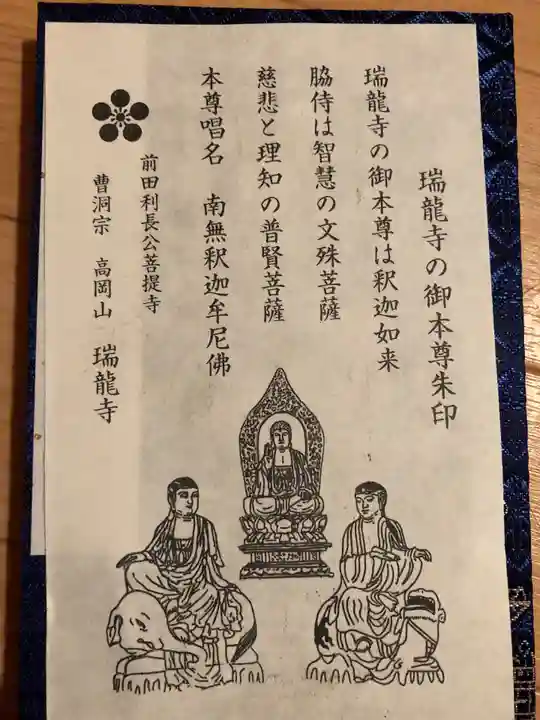 瑞龍寺の御本尊朱印
瑞龍寺の御本尊は釈迦如来
脇侍は智慧の文殊菩薩
慈悲と理知の普賢菩薩
本尊唱名 南無釈迦牟尼佛
前田利長公菩提寺
曹洞宗 高岡山 瑞龍寺